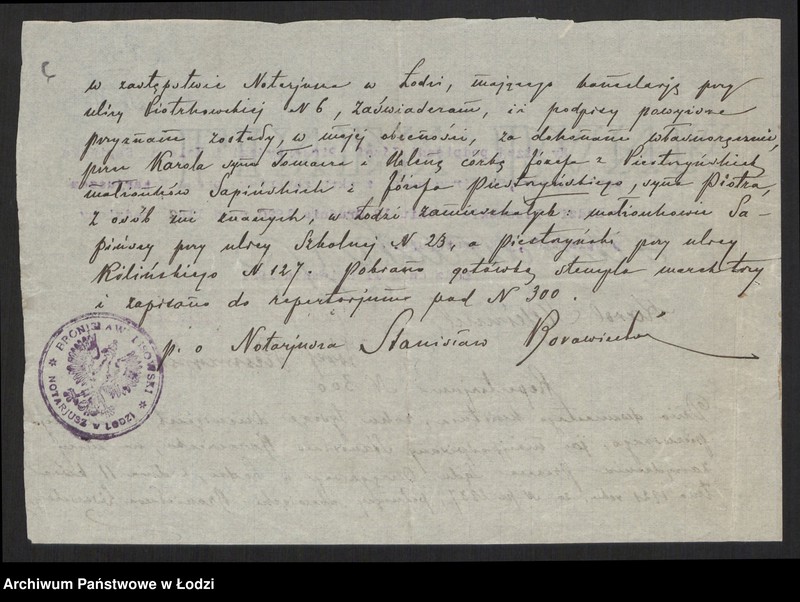 w zastępstwie Notarjusza w Łodzi, mającego kancelarję przy
ulicy Piotrkowskiej N 6, zaświadczam, iż podpisy powyższe
przyznane zostały, w mojej obecności, za dokonane własnoręcznie,
przez Karola syna Tomasza i Helenę córkę Józefa z Piestrzyńskich
małżonków Sapińskich i Józefa Piestrzyńskiego, syna Piotra,
z osób mi znanych, w Łodzi zamieszkałych: małżonkowie Sa-
pińscy przy ulicy Szkolnej N 23, a Piestrzyński przy ulicy
Kilińskiego N 127. Pobrano gotówką stempla marek trzy
i zapisano do repertorjum pod N 300.
p. o Notarjusza Stanisław
BRONISŁAW LISOWSKI
NOTARJUSZ w ŁODZI
Archiwum Państwowe w Łodzi